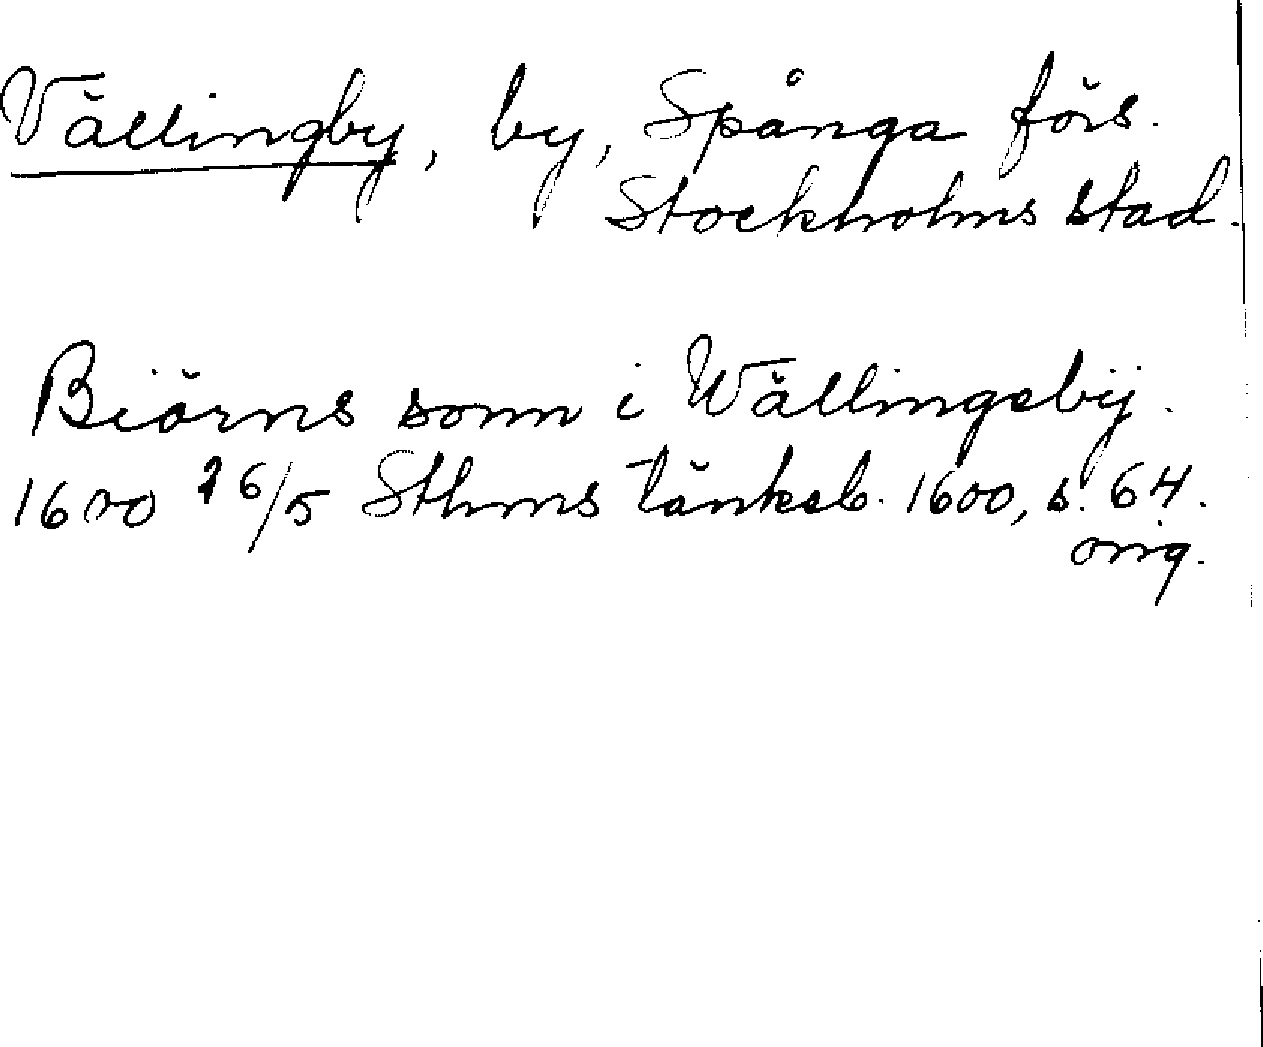 Vällingby, by, Spånga förs.
Stockholms stad.
Biörns sonn i Wällingebij.
1600 26/5 Sthms tänkeb. 1600, s. 64.
orig.